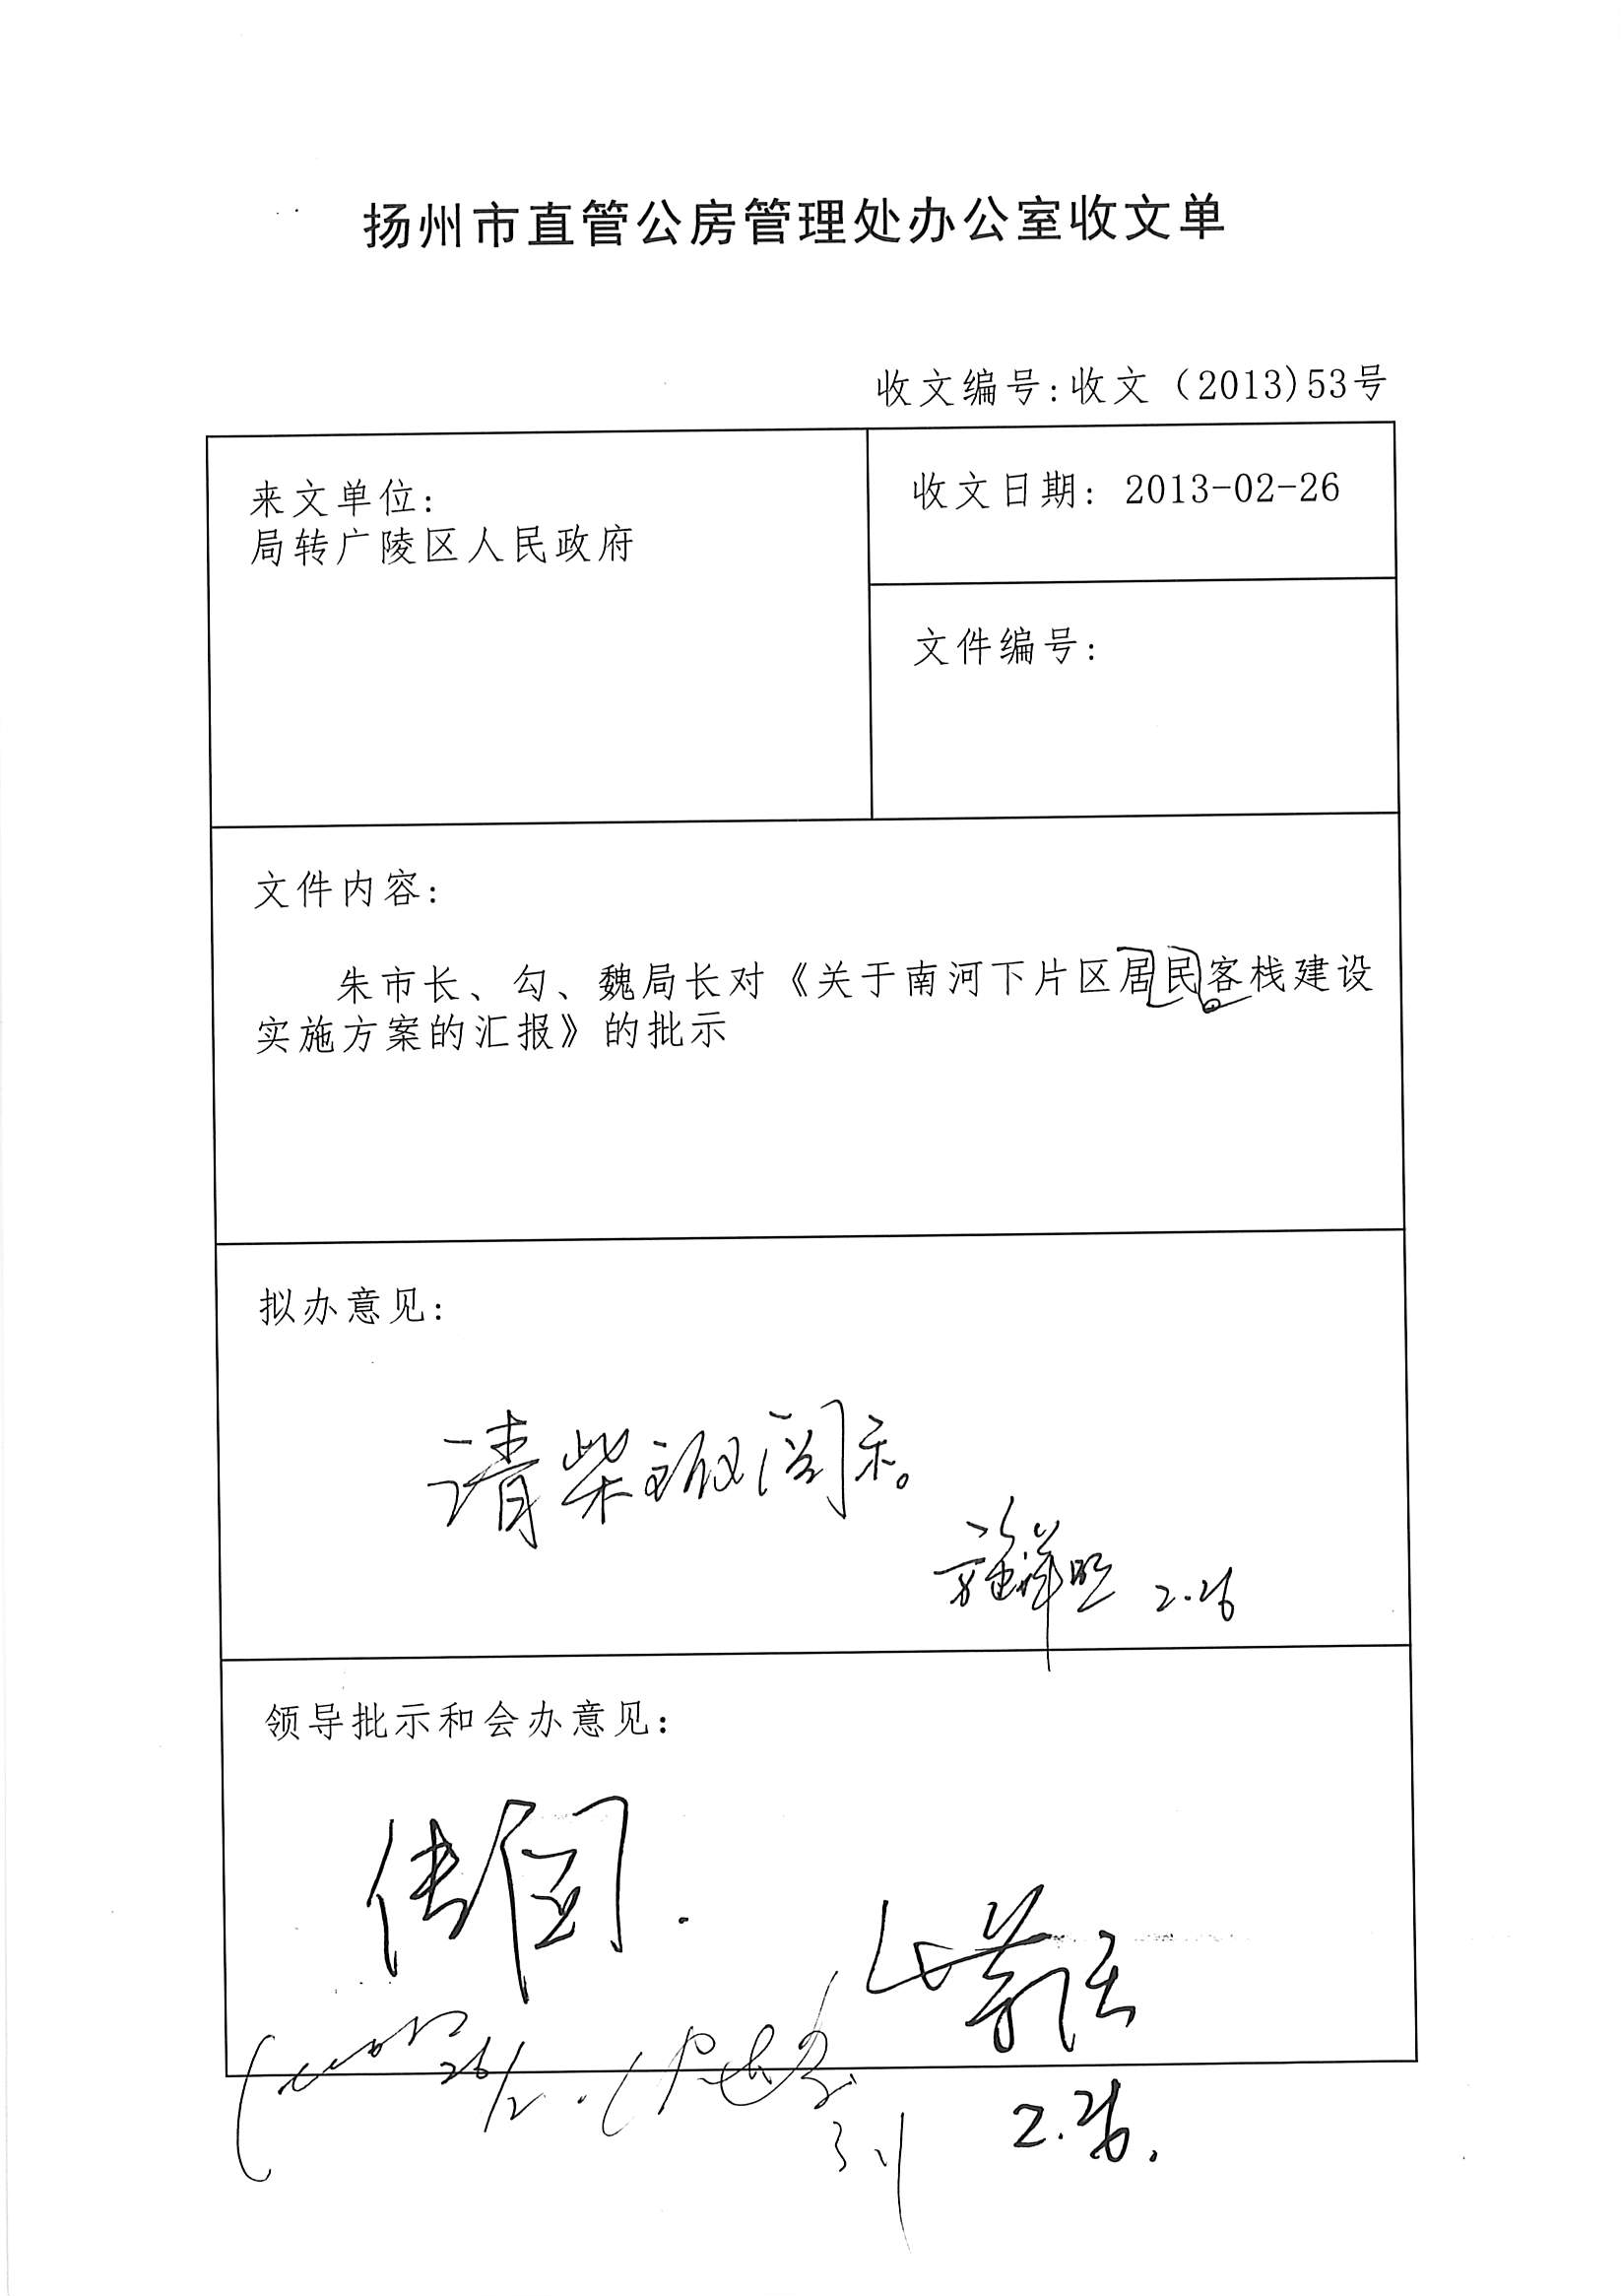 扬州市直管公房管理处办公室收文单
收文编号:收文（2013)53号
来文单位:
局转广陵区人民政府
收文日期: 2013-02-26
文件编号:
文件内容:
朱市长、勾、魏局长对《关于南河下片区居民客栈建设
实施方案的汇报》的批示
拟办意见:
请柴 阅示。
2.26
领导批示和会办意见:
传阅.
26/2.
2.26.